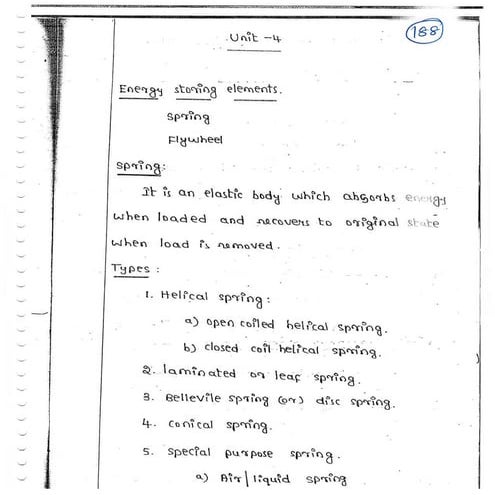 188
Unit -4
Energy storing elements.
spring
Flywheel
spring:
It is an elastic body which absorbs energy
when loaded and recovers to original state
when load is removed.
Types :
1. Helical spring :
a) open coiled helical spring.
b) closed coil helical spring.
2. laminated or leaf spring.
3. Bellevile spring (or) disc spring.
4. conical spring.
5. special purpose spring.
a) Air/liquid spring